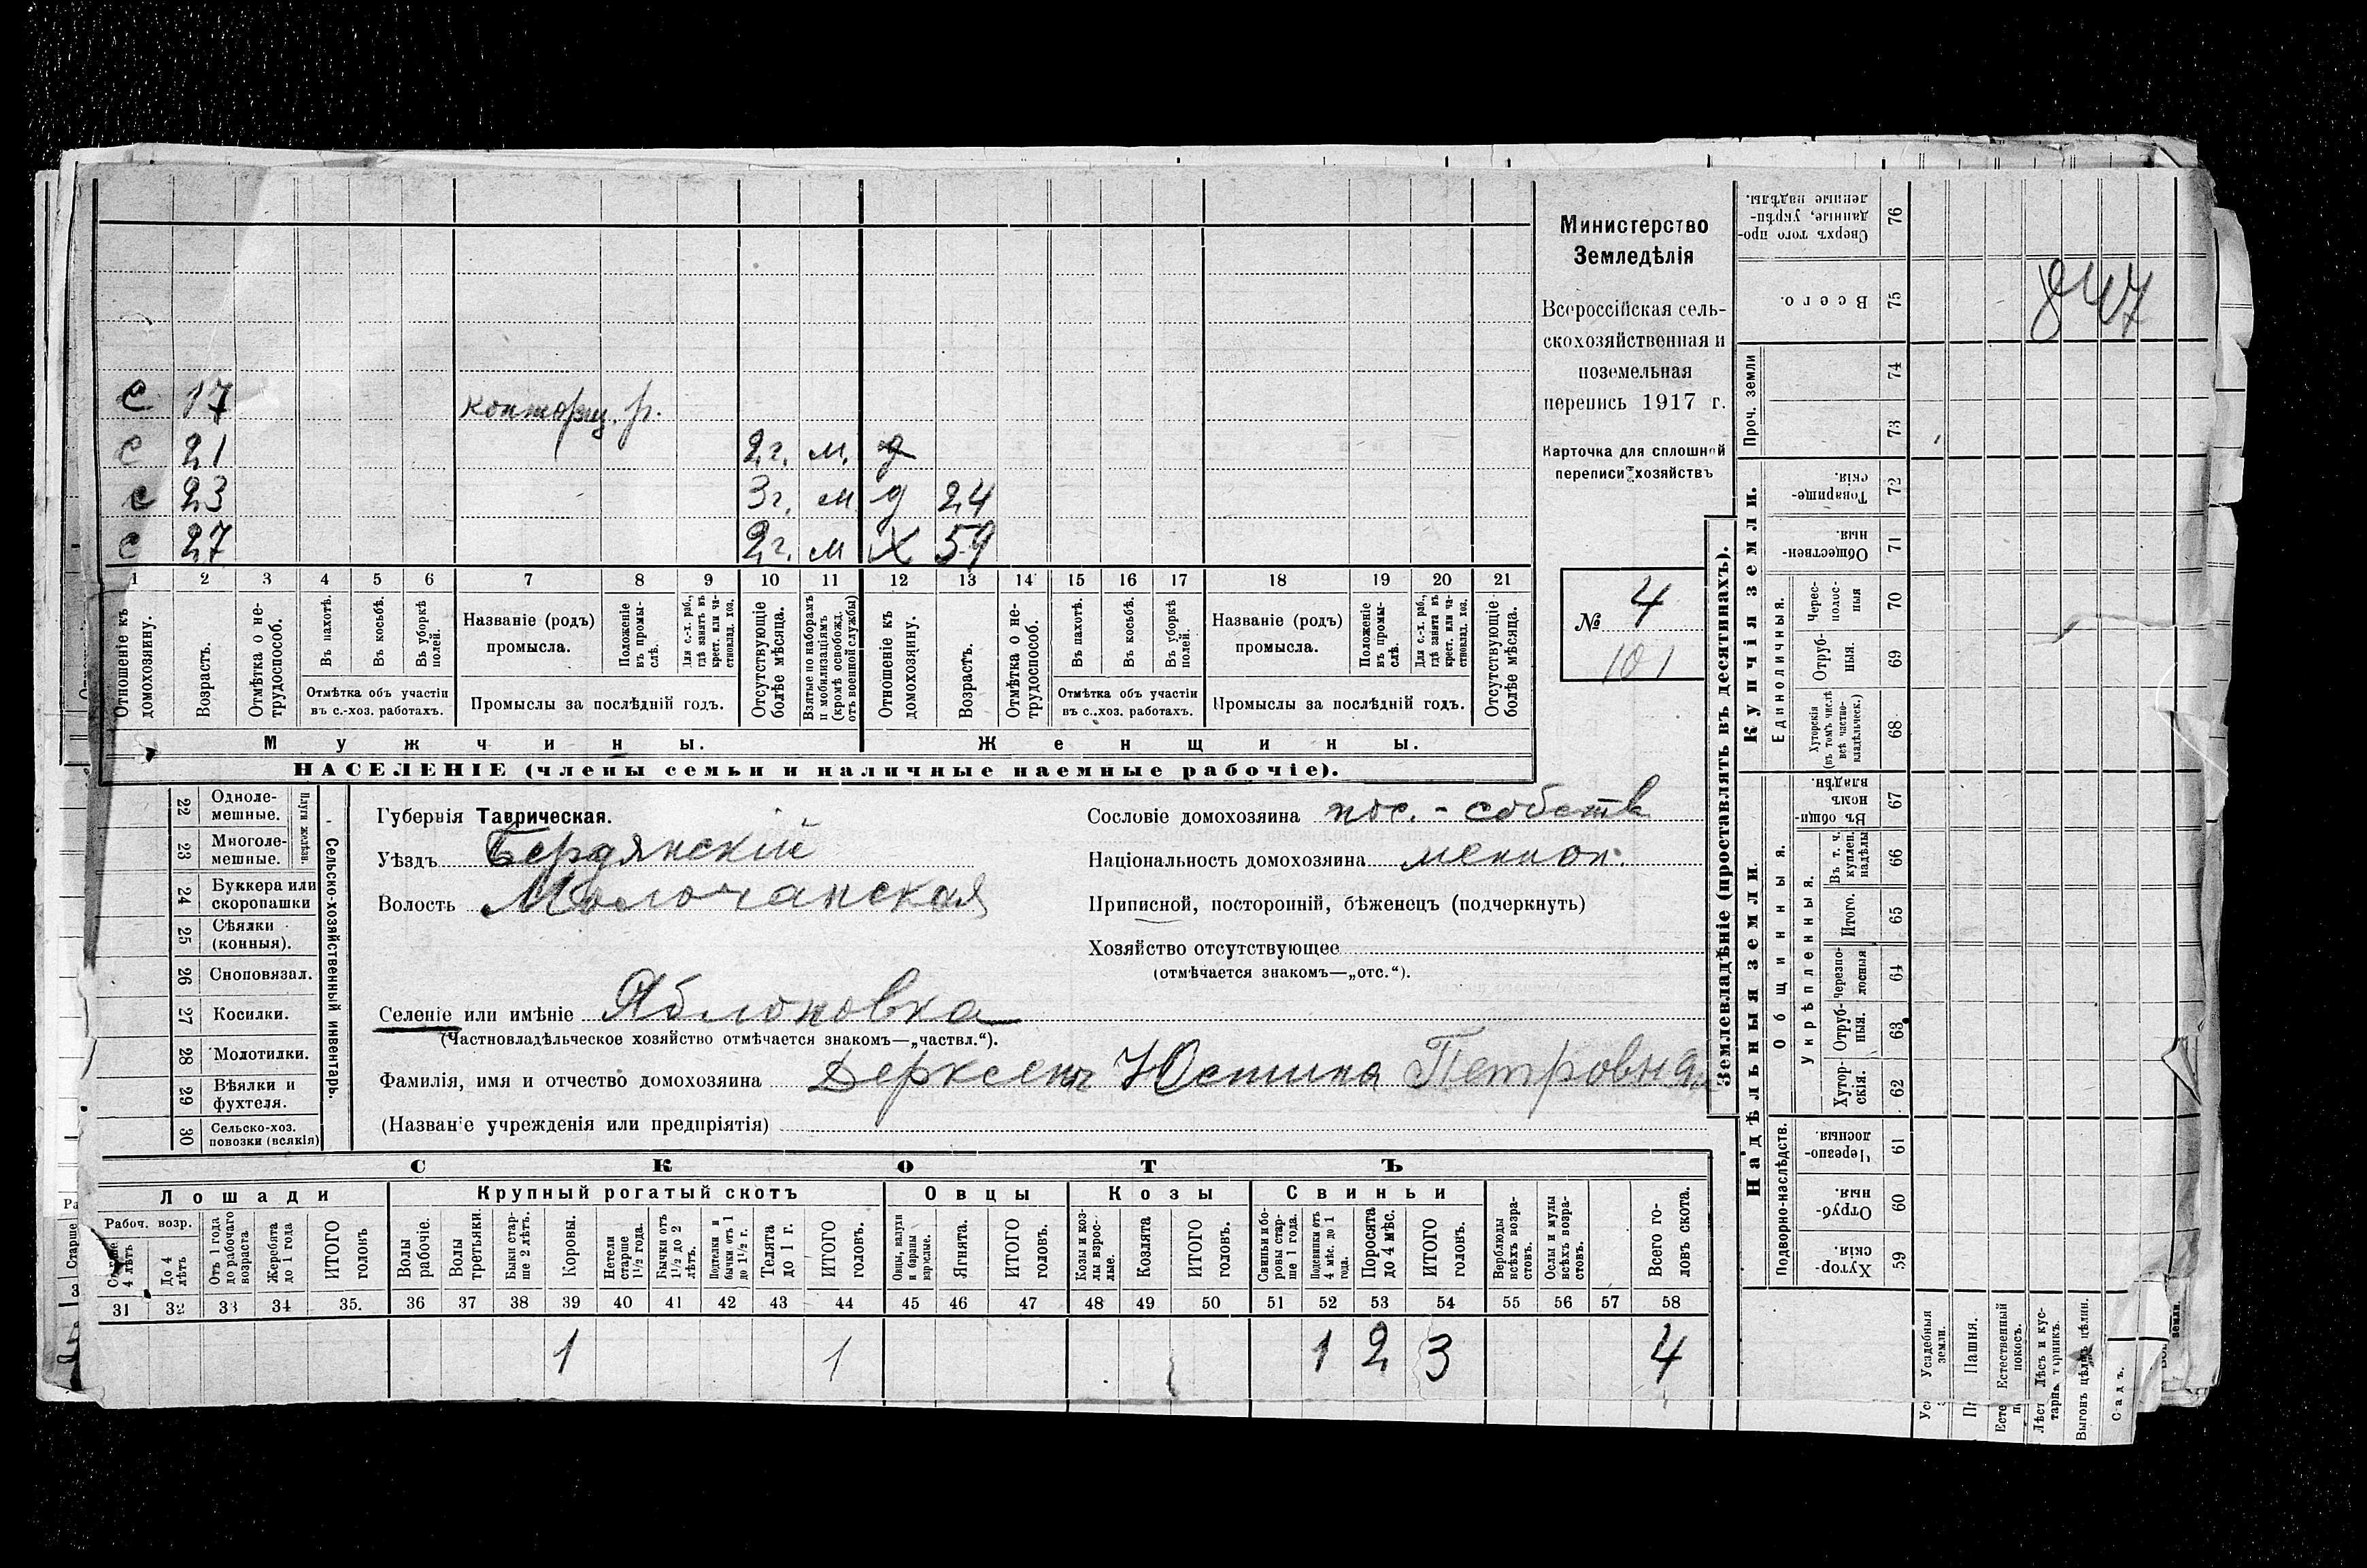 Министерство
Земледѣлія
Всероссійская сель-
скохозяйственная и
поземельная
перепись 1917 г.
Карточка для сплошной
переписи хозяйствъ
№ 4
101
847
с 17 конторщ. р.
с 21 2 г. м. д
с 23 3 г. м д 24
с 27 2 г. м х 59
1 2 3 4 5 6 7 8 9 10 11 12 13 14 15 16 17 18 19 20 21
Отношеніе къ домохозяину.
Возрастъ.
Отмѣтка о не-трудоспособ.
Въ пахотѣ.
Въ косьбѣ.
Въ уборкѣ полей.
Отмѣтка объ участіи
въ с.-хоз. работахъ.
Названіе (родъ)
промысла.
Положеніе въ промы-слѣ.
Для с.-х. раб., гдѣ занятъ въ крест. или ча-стновлад. хоз.
Промыслы за послѣдній годъ.
Отсутствующіе болѣе мѣсяца.
Взятые по наборамъ и мобилизаціямъ (кромѣ освобожд. отъ военной службы)
Отношеніе къ домохозяину.
Возрастъ.
Отмѣтка о не-трудоспособ.
Въ пахотѣ.
Въ косьбѣ.
Въ уборкѣ полей.
Отмѣтка объ участіи
въ с.-хоз. работахъ.
Названіе (родъ)
промысла.
Положеніе въ промы-слѣ.
Для с.-х. раб., гдѣ занята въ крест. или ча-стновлад. хоз.
Промыслы за послѣдній годъ.
Отсутствующіе болѣе мѣсяца.
Мужчины.
Женщины.
НАСЕЛЕНІЕ (члены семьи и наличные наемные рабочіе).
Сельско-хозяйственный инвентарь.
Плуги желѣзн.
22 Одноле-мешные.
23 Многоле-мешные.
24 Буккера или скоропашки
25 Сѣялки (конныя).
26 Сноповязал.
27 Косилки.
28 Молотилки.
29 Вѣялки и фухтеля.
30 Сельско-хоз. повозки (всякія)
Губернія Таврическая.
Уѣздъ Бердянскій
Волость Молочанская
Сословіе домохозяина пос.-собств
Національность домохозяина меннон.
Приписной, посторонній, бѣженецъ (подчеркнуть)
Хозяйство отсутствующее
(отмѣчается знакомъ—„отс.“).
Селеніе или имѣніе Яблоновка
(Частновладѣльческое хозяйство отмѣчается знакомъ—„частвл.“).
Фамилія, имя и отчество домохозяина Дерксенъ Юстина Петровна
(Названіе учрежденія или предпріятія)
СКОТЪ
Лошади
Рабоч. возр.
Старше 4 лѣтъ
До 4 лѣтъ
Отъ 1 года до рабочаго возраста
Жеребята до 1 года
ИТОГО головъ
Крупный рогатый скотъ
Волы рабочіе.
Волы третьяки.
Быки стар-ше 2 лѣтъ.
Коровы.
Нетели старше 1½ года.
Бычки отъ 1½ до 2 лѣтъ.
Подтелки и бычки отъ 1 до 1½ г.
Телята до 1 г.
ИТОГО головъ.
Овцы
Овцы, валухи и бараны взрослые.
Ягнята.
ИТОГО головъ.
Козы
Козы и коз-лы взрос-лые.
Козлята
ИТОГО головъ.
Свиньи
Свиньи и бо-ровы стар-ше 1 года.
Подсвинки отъ 4 мѣс. до 1 года.
Поросята до 4 мѣс.
ИТОГО головъ.
Верблюды всѣхъ возра-стовъ.
Ослы и мулы всѣхъ возра-стовъ.
Всего го-ловъ скота.
31 32 33 34 35. 36 37 38 39 40 41 42 43 44 45 46 47 48 49 50 51 52 53 54 55 56 57 58
1 1 1 2 3 4
Землевладѣніе (проставлять въ десятинахъ).
Надѣльныя земли.
Подворно-наслѣдств.
Хутор-скія. 59
Отруб-ныя. 60
Черезпо-лосныя. 61
Общинныя.
Укрѣпленныя.
Хутор-скія. 62
Отруб-ныя. 63
Черезпо-лосныя 64
Итого. 65
Въ т. ч. куплен. надѣлы 66
Въ общи-номъ владѣн. 67
Купчія земли.
Единоличныя.
Хуторскія (въ томъ числѣ всѣ частно-владѣльческ.) 68
Отруб-ныя. 69
Черес-полос-ныя 70
Обществен-ныя. 71
Товарище-скія. 72
Проч. земли
73
74
Всего. 75
Сверхъ того про-данные, укрѣп-ленные надѣлы. 76
Усадебныя земли.
Пашня.
Естественный покосъ.
Лѣсъ и кус-тарникъ.
Выгонъ цѣлин.
Садъ.